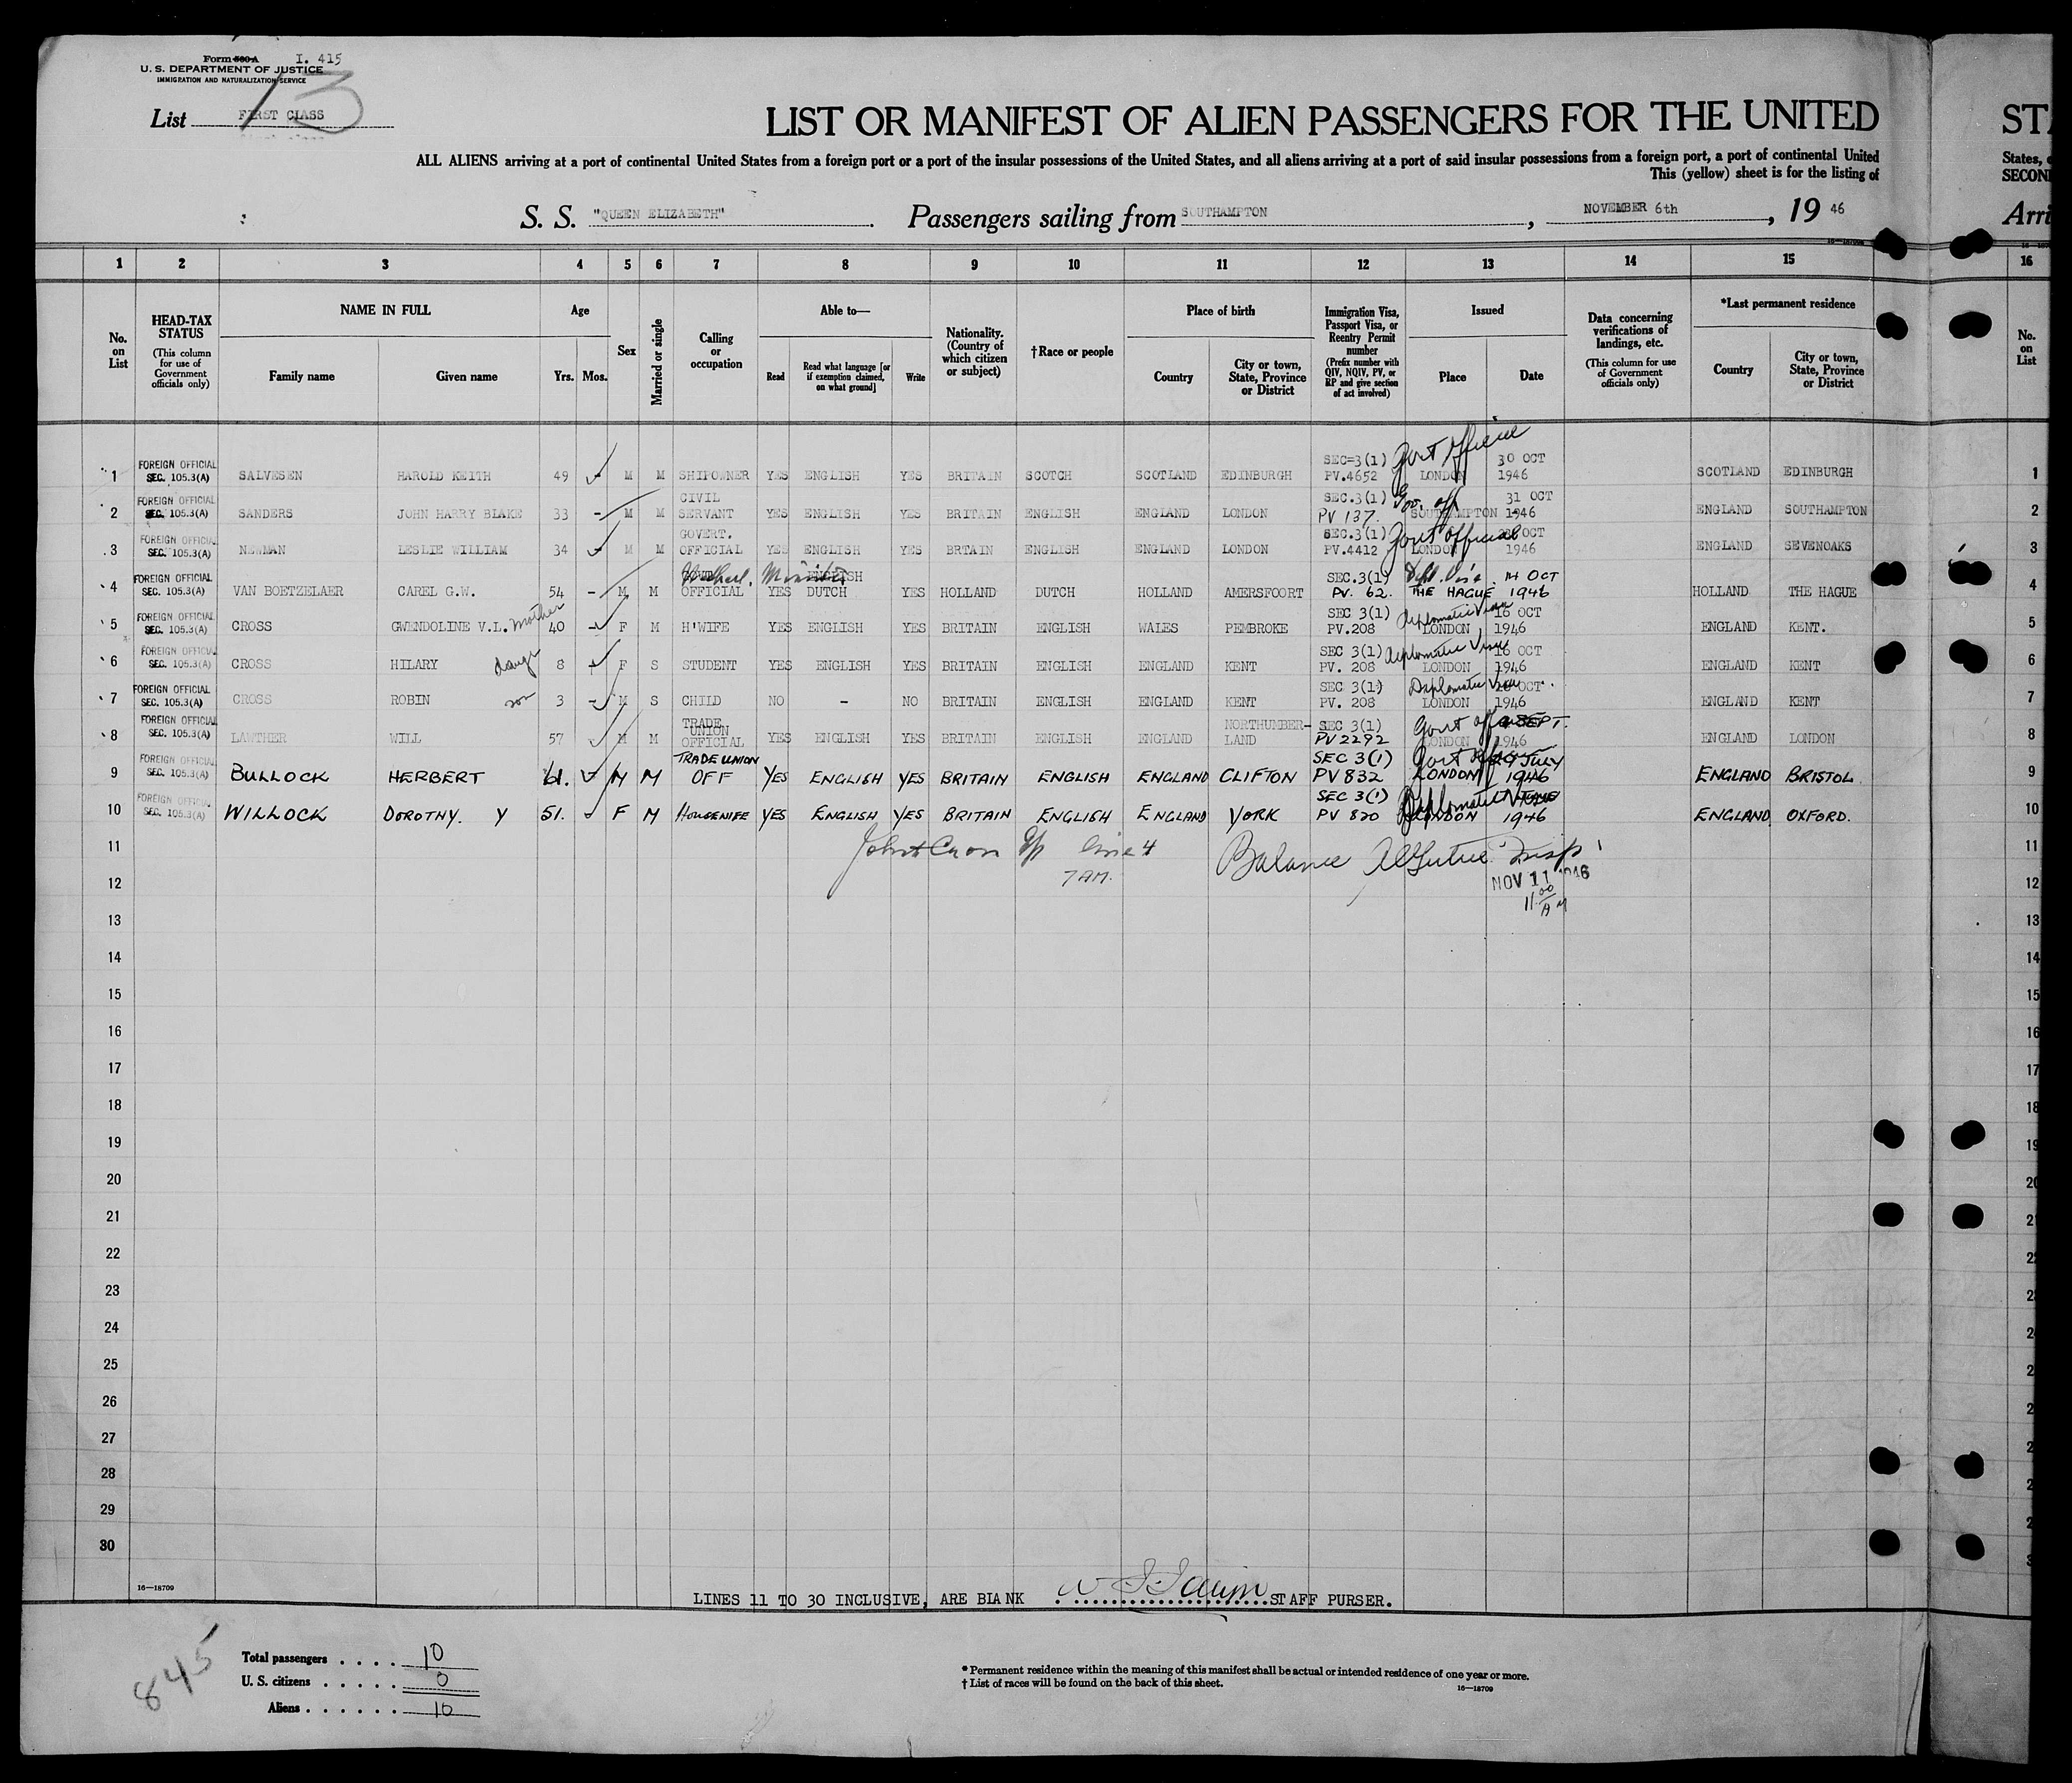 Form 500-A I. 415
U. S. DEPARTMENT OF JUSTICE
IMMIGRATION AND NATURALIZATION SERVICE
13
List FIRST CLASS
LIST OR MANIFEST OF ALIEN PASSENGERS FOR THE UNITED
ALL ALIENS arriving at a port of continental United States from a foreign port or a port of the insular possessions of the United States, and all aliens arriving at a port of said insular possessions from a foreign port, a port of continental United
This (yellow) sheet is for the listing of
S. S. "QUEEN ELIZABETH" Passengers sailing from SOUTHAMPTON, NOVEMBER 6th, 19 46
STA
States,
SECON
Arri
1 2 3 4 5 6 7 8 9 10 11 12 13 14 15 16
No. on List
HEAD-TAX STATUS (This column for use of Government officials only)
NAME IN FULL Family name Given name
Age Yrs. Mos.
Sex
Married or single
Calling or occupation
Able to— Read Read what language [or if exemption claimed, on what ground] Write
Nationality. (Country of which citizen or subject)
†Race or people
Place of birth Country City or town, State, Province or District
Immigration Visa, Passport Visa, or Reentry Permit number (Prefix number with QIV, NQIV, PV, or RP and give section of act involved)
Issued Place Date
Data concerning verifications of landings, etc. (This column for use of Government officials only)
*Last permanent residence Country City or town, State, Province or District
No. on List
1 FOREIGN OFFICIAL SEC. 105.3(A) SALVESEN HAROLD KEITH 49 M M SHIPOWNER YES ENGLISH YES BRITAIN SCOTCH SCOTLAND EDINBURGH SEC=3(1) PV.4652 Govt Official LONDON 30 OCT 1946 SCOTLAND EDINBURGH 1
2 FOREIGN OFFICIAL SEC. 105.3(A) SANDERS JOHN HARRY BLAKE 33 - M M CIVIL SERVANT YES ENGLISH YES BRITAIN ENGLISH ENGLAND LONDON SEC.3(1) PV 137. Gov. off SOUTHAMPTON 31 OCT 1946 ENGLAND SOUTHAMPTON 2
3 FOREIGN OFFICIAL SEC. 105.3(A) NEWMAN LESLIE WILLIAM 34 M M GOVERT. OFFICIAL YES ENGLISH YES BRTAIN ENGLISH ENGLAND LONDON SEC.3(1) PV.4412 Govt official LONDON OCT 1946 ENGLAND SEVENOAKS 3
4 FOREIGN OFFICIAL SEC. 105.3(A) VAN BOETZELAER CAREL G.W. 54 - M M Minister OFFICIAL YES ENGLISH DUTCH YES HOLLAND DUTCH HOLLAND AMERSFOORT SEC.3(1) PV. 62. Dipl. Visa THE HAGUE 14 OCT 1946 HOLLAND THE HAGUE 4
5 FOREIGN OFFICIAL SEC. 105.3(A) CROSS GWENDOLINE V.L. Mother 40 - F M H'WIFE YES ENGLISH YES BRITAIN ENGLISH WALES PEMBROKE SEC 3(1) PV.208 Diplomatic Visa LONDON 16 OCT 1946 ENGLAND KENT. 5
6 FOREIGN OFFICIAL SEC. 105.3(A) CROSS HILARY 8 F S STUDENT YES ENGLISH YES BRITAIN ENGLISH ENGLAND KENT SEC 3(1) PV. 208 Diplomatic Visa LONDON 16 OCT 1946 ENGLAND KENT 6
7 FOREIGN OFFICIAL SEC. 105.3(A) CROSS ROBIN son 3 M S CHILD NO - NO BRITAIN ENGLISH ENGLAND KENT SEC 3(1) PV. 208 Diplomatic Visa LONDON OCT. 1946 ENGLAND KENT 7
8 FOREIGN OFFICIAL SEC. 105.3(A) LAWTHER WILL 57 M M TRADE UNION OFFICIAL YES ENGLISH YES BRITAIN ENGLISH ENGLAND NORTHUMBER-LAND SEC 3(1) PV 2292 Govt off LONDON SEPT. 1946 ENGLAND LONDON 8
9 FOREIGN OFFICIAL SEC. 105.3(A) BULLOCK HERBERT 61. M M TRADE UNION OFF YES ENGLISH YES BRITAIN ENGLISH ENGLAND CLIFTON SEC 3(1) PV 832 Govt LONDON JULY 1946 ENGLAND BRISTOL 9
10 FOREIGN OFFICIAL SEC. 105.3(A) WILLOCK DOROTHY. Y 51. F M HOUSEWIFE YES ENGLISH YES BRITAIN ENGLISH ENGLAND YORK SEC 3(1) PV 820 Diplomatic LONDON 1946 ENGLAND OXFORD. 10
11 line 4 Balance 11
12 7 AM. NOV 11 1946 12
11 00 AM
13 13
14 14
15 15
16 16
17 17
18 18
19 19
20 20
21 21
22 22
23
24
25
26
27
28
29
30
16—18709
LINES 11 TO 30 INCLUSIVE, ARE BLANK STAFF PURSER.
845
Total passengers . . . . 10
U. S. citizens . . . . . 0
Aliens . . . . . . 10
* Permanent residence within the meaning of this manifest shall be actual or intended residence of one year or more.
† List of races will be found on the back of this sheet.
16—18709